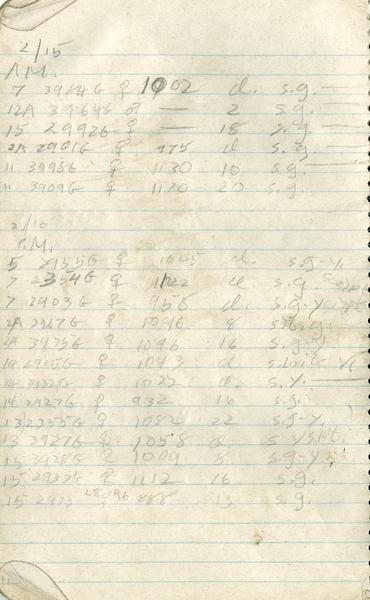 2/15
A.M.
7 3984G ♀ 1002 d. s.g.
12A 3964G ♂ — 2 s.g.
15 2992G ♀ — 18 s.g.
2A 2901G ♀ 975 d s.g.
11 3998G ♀ 1130 10 s.g.
11 3909G ♀ 1170 20 s.g.
2/16
P.M.
5 2955G ♀ 1045 d. s.g-y.
7 ♀ 1122 d s.g.
7 2903G ♀ 956 d. s.g-y
2A 2967G ♀ 1096 8
2A 3975G ♀ 1096 16 s.g-y
14 2915G ♀ 1043 d
14 ♀ 1022 d. s.y.
14 2927G ♀ 932 16 s.g.
13 2355G ♀ 1082 22 s.g-y.
13 3927G ♀ 1058 d
15 3928G ♀ 1009 8 s.g-y
15 2937G ♀ 1112 16 s.g.
15 888 13 s.g.